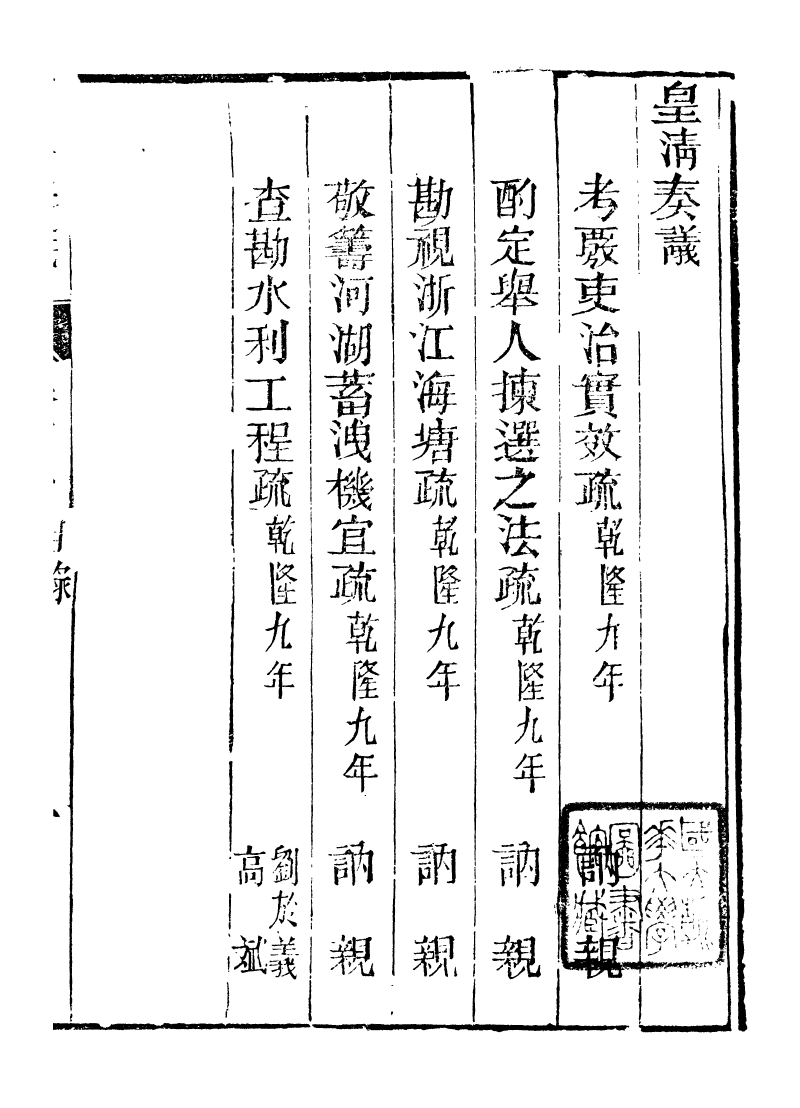 皇清奏議
考覈吏治實效疏 乾隆九年 訥親
酌定舉人揀選之法疏 乾隆九年 訥親
勘視浙江海塘疏 乾隆九年 訥親
敬籌河湖蓄洩機宜疏 乾隆九年 訥親
查勘水利工程疏 乾隆九年 劉於義 高斌
目錄